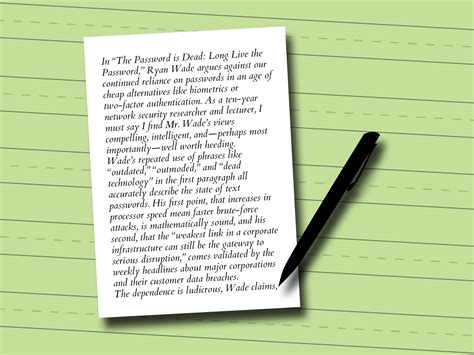 In “The Password is Dead: Long Live the
Password,” Ryan Wade argues against our
continued reliance on passwords in an age of
cheap alternatives like biometrics or
two-factor authentication. As a ten-year
network security researcher and lecturer, I
must say I find Mr. Wade’s views
compelling, intelligent, and—perhaps most
importantly—well worth heeding.
Wade’s repeated use of phrases like
“outdated,” “outmoded,” and “dead
technology” in the first paragraph all
accurately describe the state of text
passwords. His first point, that increases in
processor speed mean faster brute-force
attacks, is mathematically sound, and his
second, that the “weakest link in a corporate
infrastructure can still be the gateway to
serious disruption,” comes validated by the
weekly headlines about major corporations
and their customer data breaches.
The dependence is ludicrous, Wade claims,